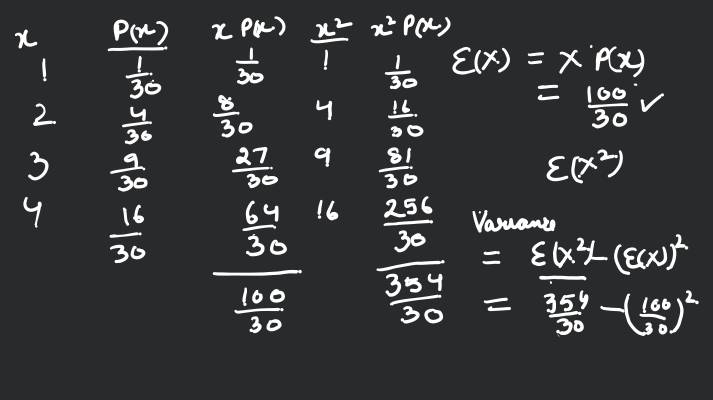 x P(x) x P(x) x² x² P(x)
1 1/30 1/30 1 1/30
2 4/30 8/30 4 16/30
3 9/30 27/30 9 81/30
4 16/30 64/30 16 256/30
100/30 354/30
E(X) = X P(x)
= 100/30 ✓
E(X²)
Variance
= E(X²) - (E(X))²
= 354/30 - (100/30)²